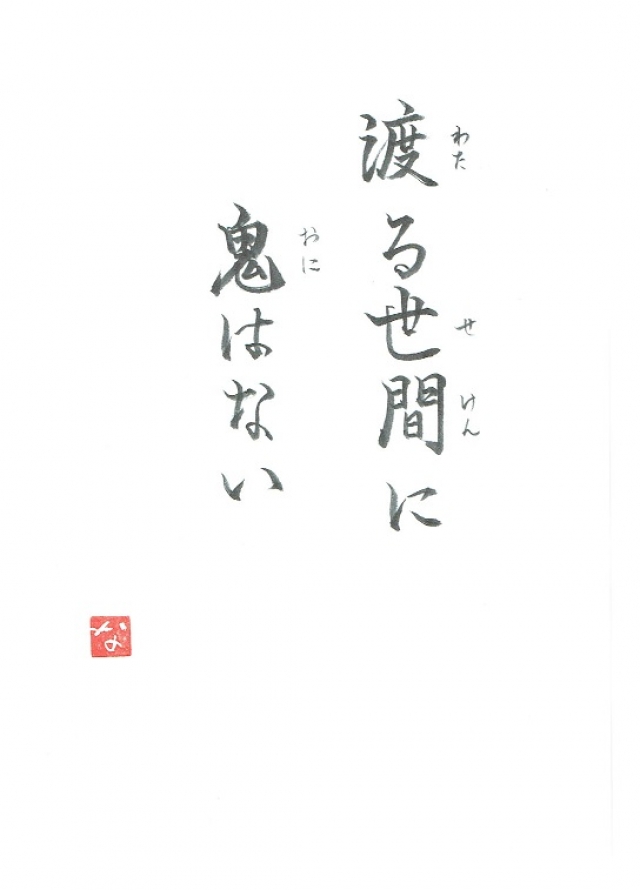 渡る世間に
わた
せ
けん
鬼はない
おに
な